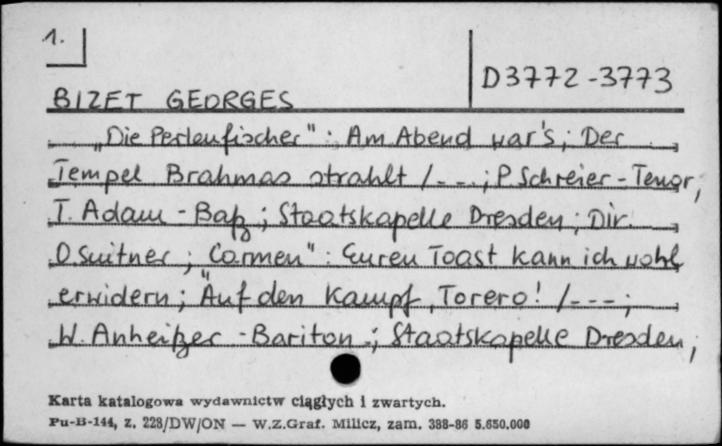 1.
D3772-3773
BIZET GEORGES
„Die Perlenfischer": Am Abend war's; Der
Tempel Brahmas strahlt /---; P. Schreier - Tenor;
T. Adam - Baß; Staatskapelle Dresden; Dir.
O. Suitner; "Carmen": Euren Toast kann ich wohl
erwidern; Auf den Kampf, Torero! /---;
W. Anheißer - Bariton; Staatskapelle Dresden;
Karta katalogowa wydawnictw ciągłych i zwartych.
Pu-B-144, z. 228/DW/ON — W.Z.Graf. Milicz, zam. 388-86 5.650.000